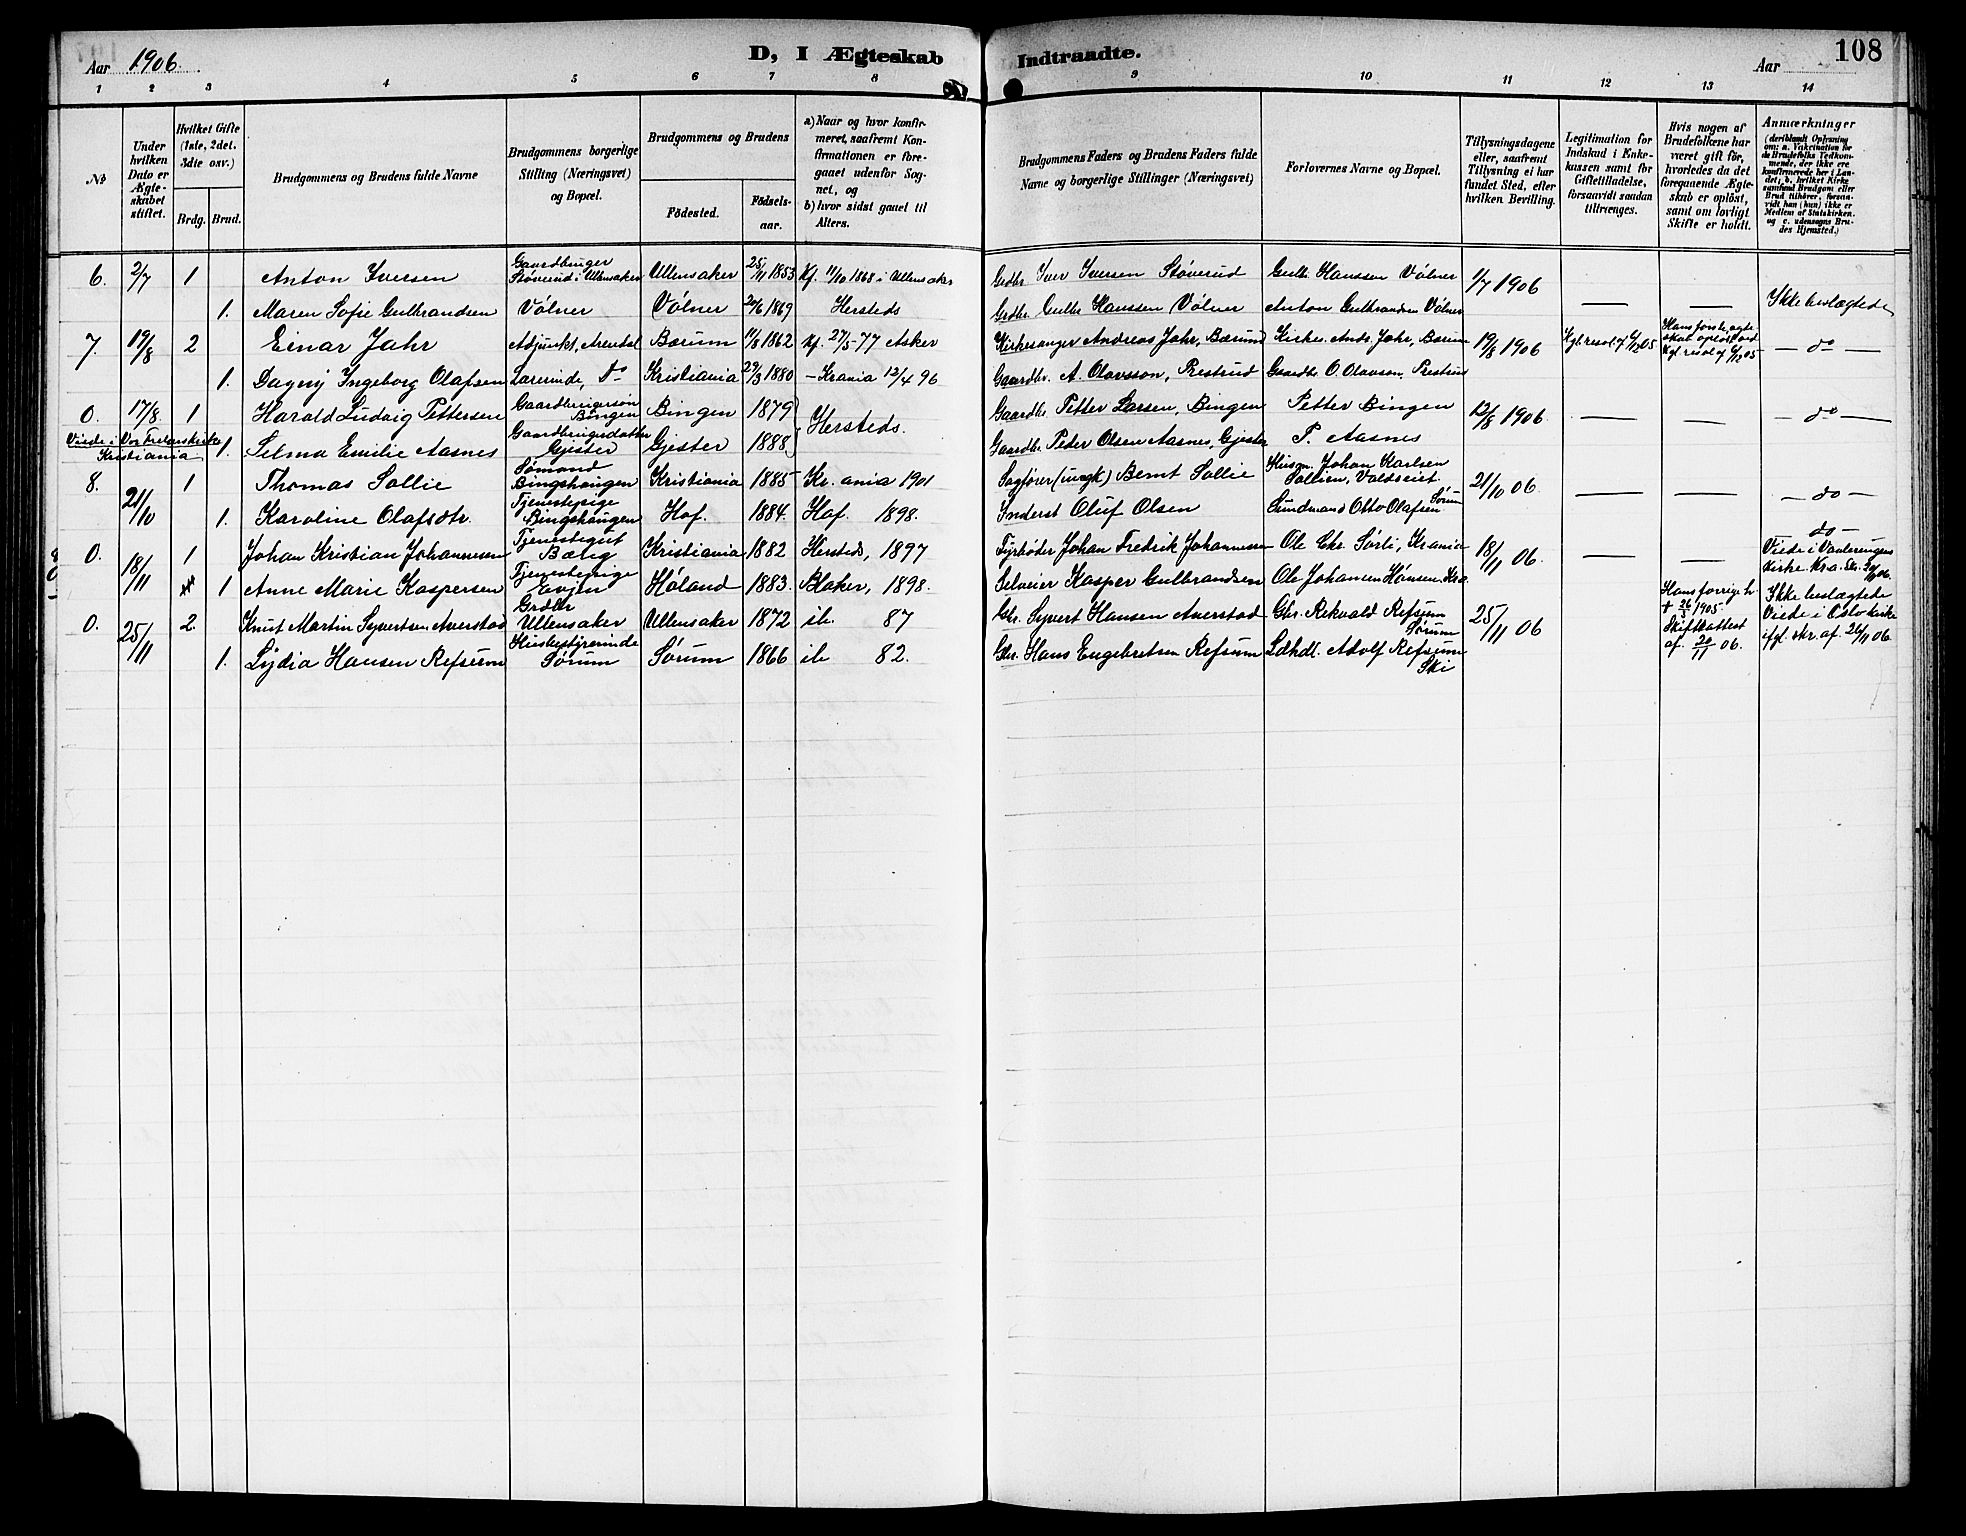 Aar 1906.
D, I Ægteskab
Indtraadte.
Aar
108
1 2 3 4 5 6 7 8 9 10 11 12 13 14
№
Under hvilken Dato er Ægteskabet stiftet.
Hvilket Gifte (1ste, 2det, 3die osv.)
Brdg. Brud.
Brudgommens og Brudens fulde Navne
Brudgommens borgerlige Stilling (Næringsvei) og Bopæl.
Brudgommens og Brudens
Fødested.
Fødselsaar.
a) Naar og hvor konfirmeret, saafremt Konfirmationen er foregaaet udenfor Sognet, og
b) hvor sidst gaaet til Alters.
Brudgommens Faders og Brudens Faders fulde Navne og borgerlige Stillinger (Næringsvei)
Forlovernes Navne og Bopæl.
Tillysningsdagene eller, saafremt Tillysning ei har fundet Sted, efter hvilken Bevilling.
Legitimation for Indskud i Enkekassen samt for Giftetilladelse, forsaavidt saadan tiltrænges.
Hvis nogen af Brudefolkene har været gift før, hvorledes da det foregaaende Ægteskab er opløst, samt om lovligt Skifte er holdt.
Anmærkninger (deriblandt Oplysning om: a. Vakcination for de Brudefolks Vedkommende, der ikke ere konfirmerede her i Landet; b. hvilket Kirkesamfund Brudgom eller Brud tilhører, forsaavidt han (hun) ikke er Medlem af Statskirken, og c. udensogns Brudes Hjemsted.)
6. 2/7 1 Anton Iversen Gaardbruger Støverud i Ullensaker Ullensaker 25/11 1853 Kf. 11/10 1868 i Ullensaker Grdbr Iver Iversen Støverud Gulb. Hanssen Vølner 1/7 1906
1. Maren Sofie Gulbrandsen Vølner Vølner 20/6 1869 Hersteds Grdbr Gulbr Hanssen Vølner Anton Gulbrandsen Vølner — — Ikke beslægtede
7. 19/8 2 Einar Jahr Adjunkt, Arendal Bærum 11/8 1862 Kf. 27/5-77 Asker Kirkesanger Andreas Jahr, Bærum Kirkes. Andr. Jahr, Bærum 19/8 1906 Kgl. resol. af 6/12 05 Hans første ægteskab opløst ved Kgl. resol af 6/12 05 — do —
1. Dagny Ingeborg Olafsen Lærerinde, do Kristiania 29/3 1880 — Krania 12/4 96 Gaardbr. A. Olavsson, Prestrud Gaardbr. O. Olavson, Prestrud
0. 17/8 1 Harald Ludvig Pettersen Gaardbrugersøn Bingen Bingen 1879 Hersteds. Gaardbr. Petter Larsen, Bingen Petter Bingen 12/8 1906 — — — do —
Viede i Vor Frelserskirke Kristiania 1. Selma Emilie Aasnes Gaardbrugerdatter Gjester Gjester 1888 Gaardbr. Peder Olsen Aasnes, Gjester P. Aasnes
8. 21/10 1 Thomas Sollie Sømand Bingshaugen Kristiania 1885 Kr.ania 1901 Sagfører (ungk) Bernt Sollie Husm. Johan Karlsen Sollien, Valdseiet 21/10 06. — — — do —
1. Karoline Olafsdtr. Tjenestepige Bingshaugen Hof. 1884. Hof. 1898. Inderst Oluf Olsen Sundmand Otto Olafsen Sørum
0. 18/11 1 Johan Kristian Johannesen Tjenestegut Bælig Kristiania 1882 Hersteds, 1897 Fyrbøder Johan Fredrik Johannesen Ole Chr. Sørli, Krania 18/11 06. — — do — Viede i Vaalerengens Kirke Kra.
1 Anne Marie Kaspersen Tjenestepige Evjen Høland 1883. Blaker, 1898. Selveier Kasper Gulbrandsen Ole Johansen Hansen. Kra
0. 25/11 2. Knut Martin Syvertsen Averstad Grdbr Ullensaker Ullensaker 1872 ib. 87 Gbr. Syvert Hansen Averstad Gbr. Rekvald Refsum Sørum 25/11 06 Hans forrige h. † 26/3 1905 Skifteattest af 20/11 06. Ikke beslægtede Viede i Oslo kirke ifgl. skr. af 26/11 06
1. Lydia Hansen Refsum Husbestyrerinde Sørum Sørum 1866 ib 82. Gbr. Hans Engebretsen Refsum Ldhdl. Adolf Refsum Ski